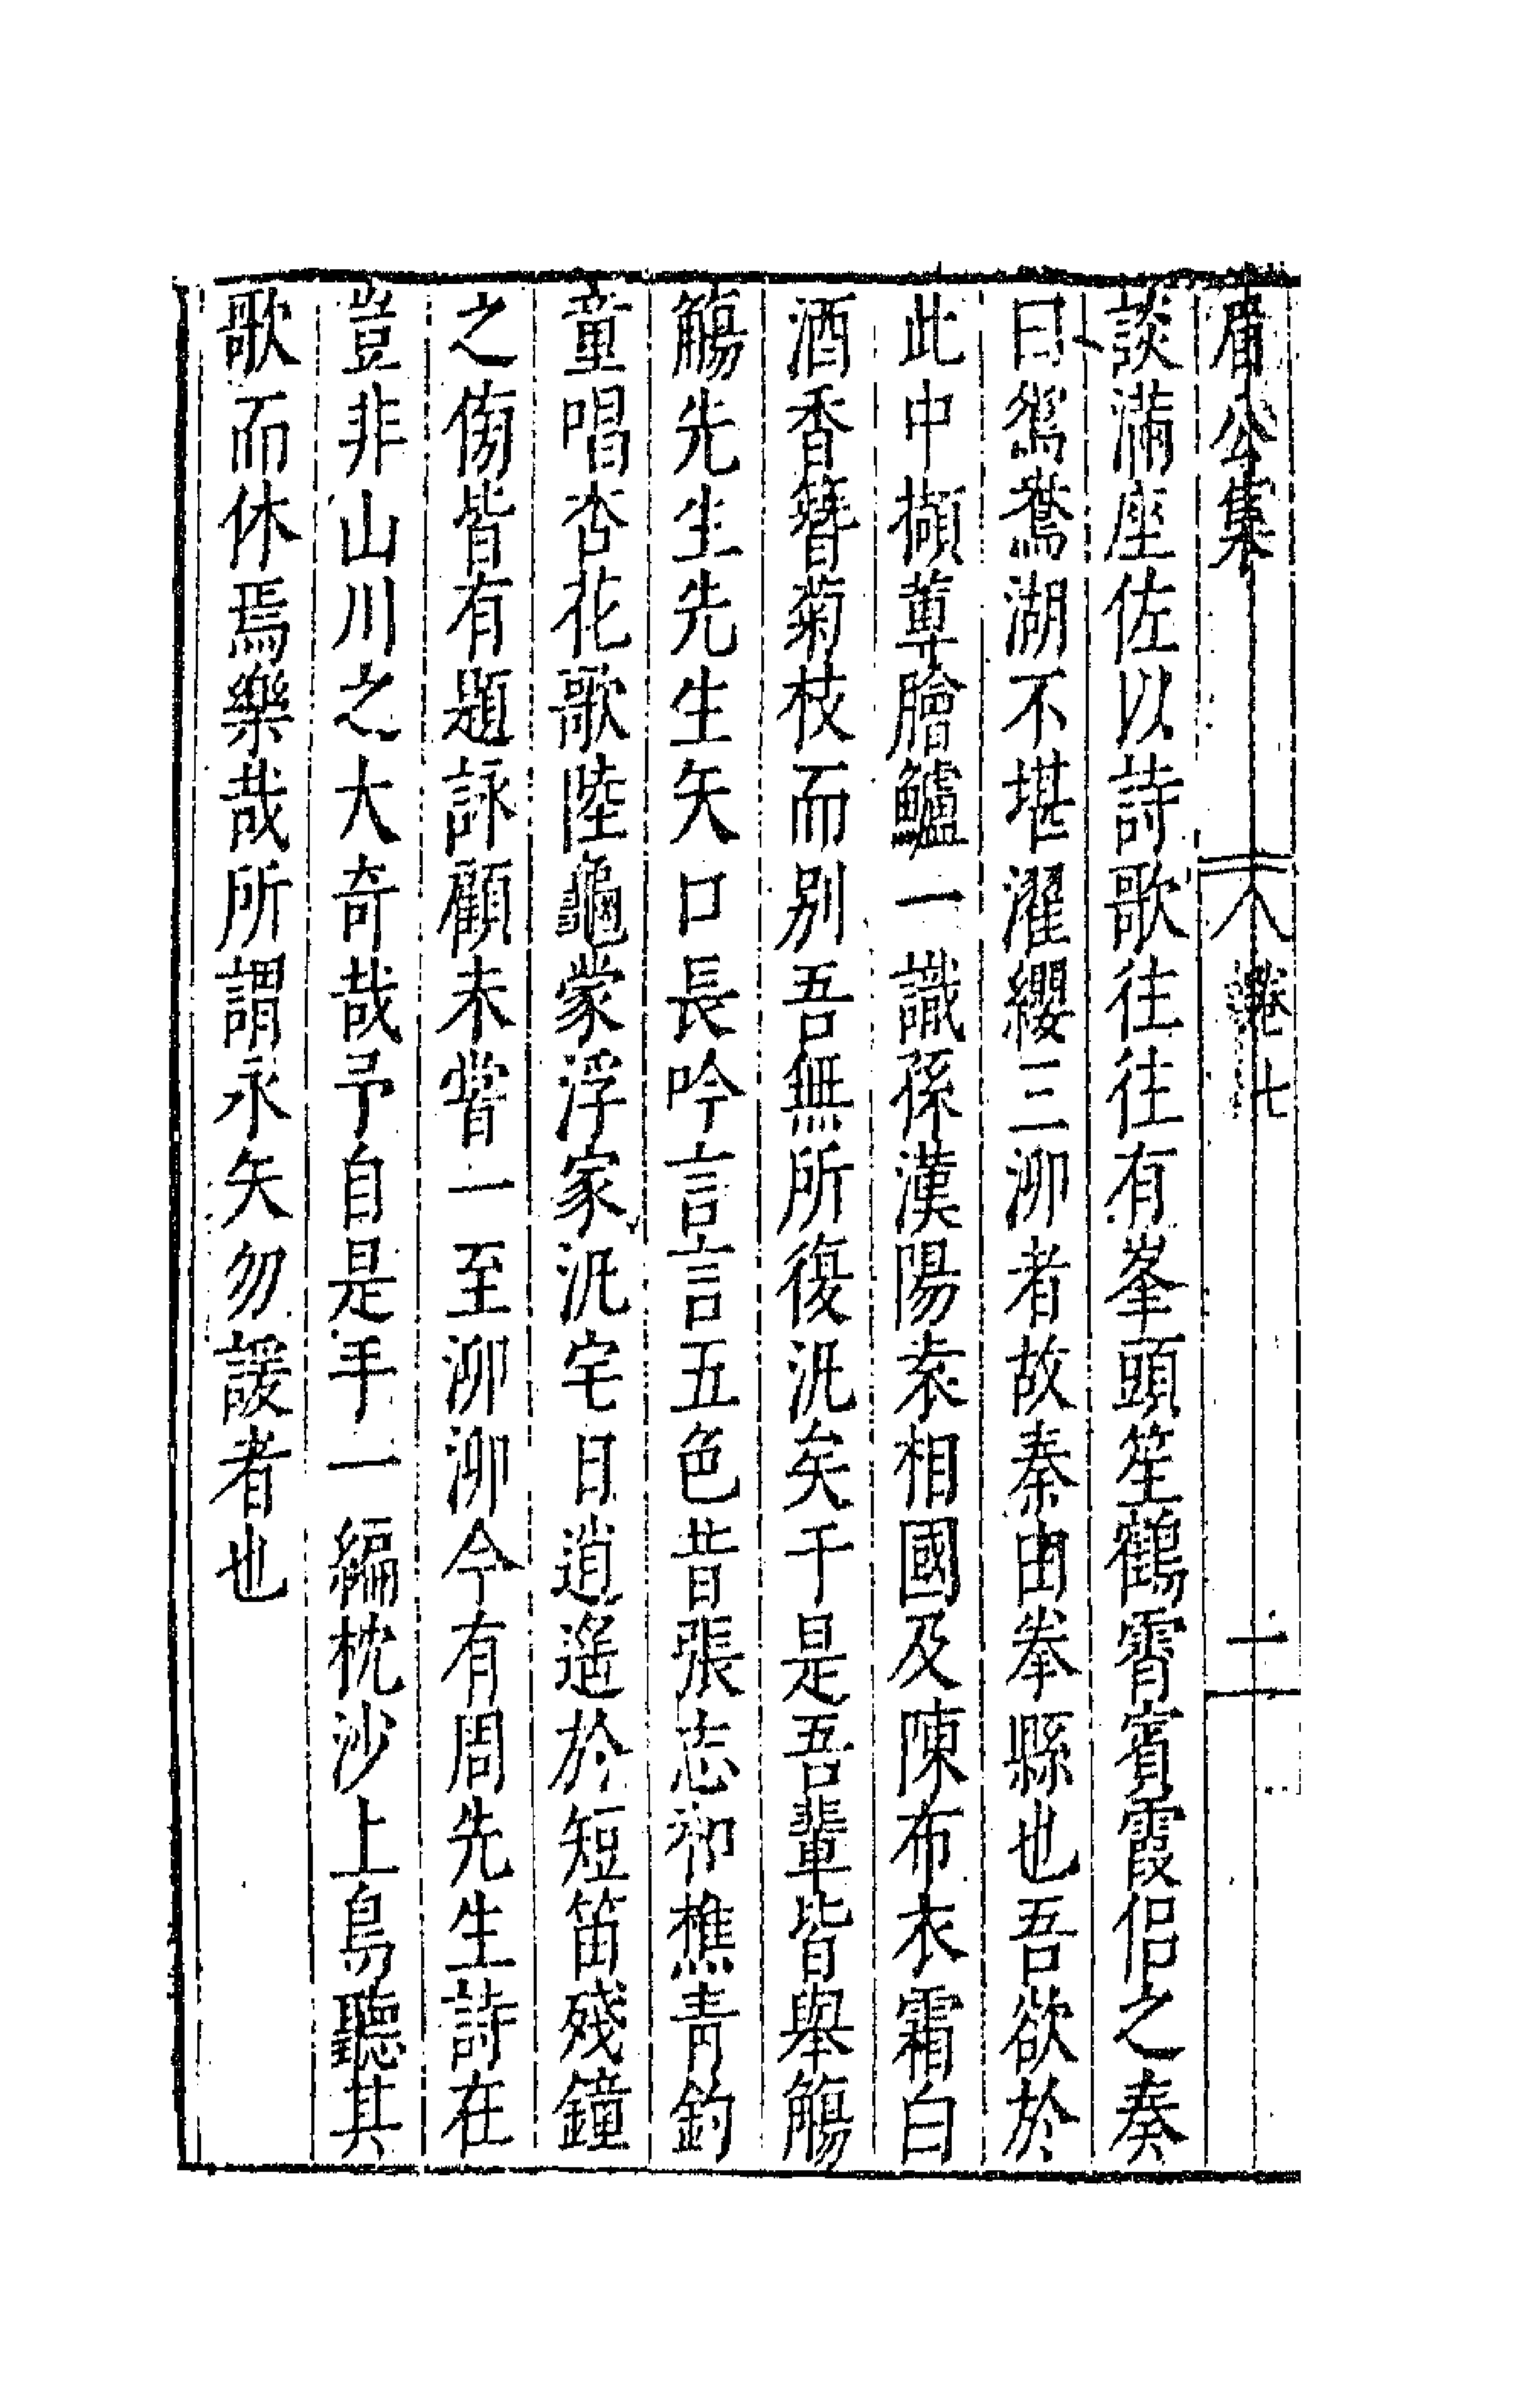 眉公集
卷七
二
談滿座佐以詩歌往往有峯頭笙鶴霄賓霞侶之奏
曰鴛鴦湖不堪濯纓三泖者故秦由拳縣也吾欲於
此中擷蓴膾鱸一識孫漢陽袁相國及陳布衣霜白
酒香簪菊枝而别吾無所復汎矣于是吾輩皆舉觴
觴先生先生矢口長吟言言五色昔張志和樵青釣
童唱杏花歌陸龜蒙浮家汎宅日逍遥於短笛殘鐘
之傍皆有題詠顧未嘗一至泖泖今有周先生詩在
豈非山川之大奇哉予自是手一編枕沙上鳥聽其
歌而休焉樂哉所謂永矢勿諼者也